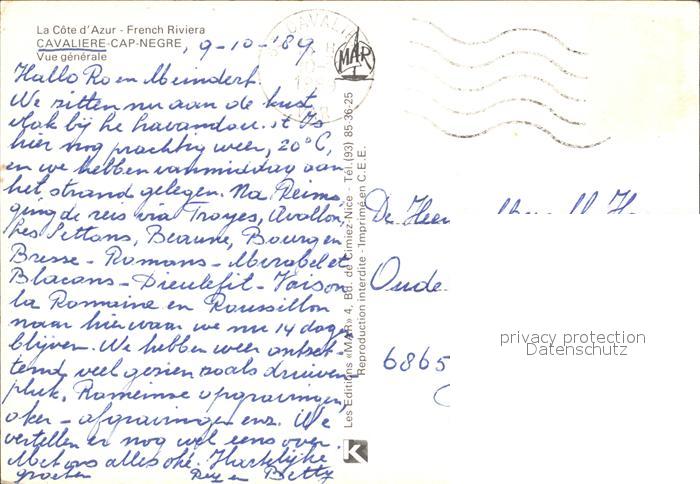 La Côte d'Azur - French Riviera
CAVALIERE-CAP-NEGRE, 9-10-'89
Vue générale
Hallo Ro en Meindert.
We zitten nu aan de kust
vlak bij le Lavandou. 't Is
hier nog prachtig weer, 20°C,
en we hebben vanmiddag aan
het strand gelegen. Na Reims
ging de reis via Troyes, Avallon,
les Settons, Beaune, Bourg en
Bresse - Romans - Mirabel et
Blacons - Dieulefit - Vaison
la Romaine en Roussillon
naar hier waar we nu 14 dagen
blijven. We hebben weer ontzet-
tend veel gezien zoals druiven
pluk, Romeinse opgravingen,
oker - afgravingen enz. We
vertellen er nog wel eens over.
Met ons alles oké. Hartelijke
groeten en Betty
MAR
Les Editions «MAR» 4, Bd. de Cimiez-Nice - Tél. (93) 85-36-25
Reproduction interdite - Imprimé en C.E.E.
K
De Heer
Oude
6865
privacy protection
Datenschutz